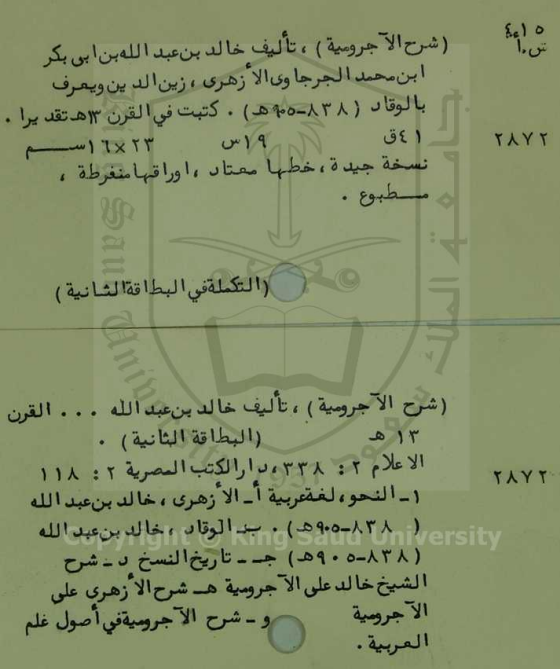 ٤١٥ر
ش.أ
(شرح الآجرومية) ، تأليف خالد بن عبد الله بن ابى بكر
ابن محمد الجرجاوى الأزهرى ، زين الدين ويعرف
بالوقاد (٨٣٨-٩٠٥هـ) . كتبت في القرن ١٣هـ تقديرا .
٢٨٧٢ ٤١ق ١٩س ٢٣×١٦سم
نسخة جيدة ، خطها معتاد ، اوراقها منفرطة ،
مطبوع .
(التكملة في البطاقة الثانية)
(شرح الآجرومية) ، تأليف خالد بن عبد الله ... القرن
١٣ هـ (البطاقة الثانية) .
الاعلام ٢ : ٣٣٨ ، دار الكتب المصرية ٢ : ١١٨
٢٨٧٢
١ـ النحو ، لغة عربية أـ الأزهرى ، خالد بن عبد الله
(٨٣٨-٩٠٥هـ) . بـ الوقاد ، خالد بن عبد الله
(٨٣٨-٩٠٥هـ) جـ ـ تاريخ النسخ د ـ شرح
الشيخ خالد على الآجرومية هـ ـ شرح الأزهرى على
الآجرومية و ـ شرح الآجرومية في أصول علم
العربية .
جامعة الملك سعود
King Saud University
1957
Copyright © King Saud University